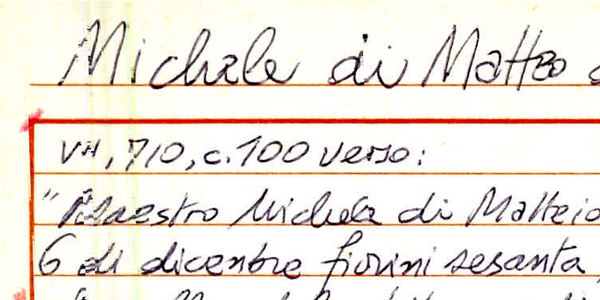 Michele di Matteo
VII, 710, c. 100 verso:
"Maestro Michele di Matteio
6 di dicenbre fiorini sesanta,